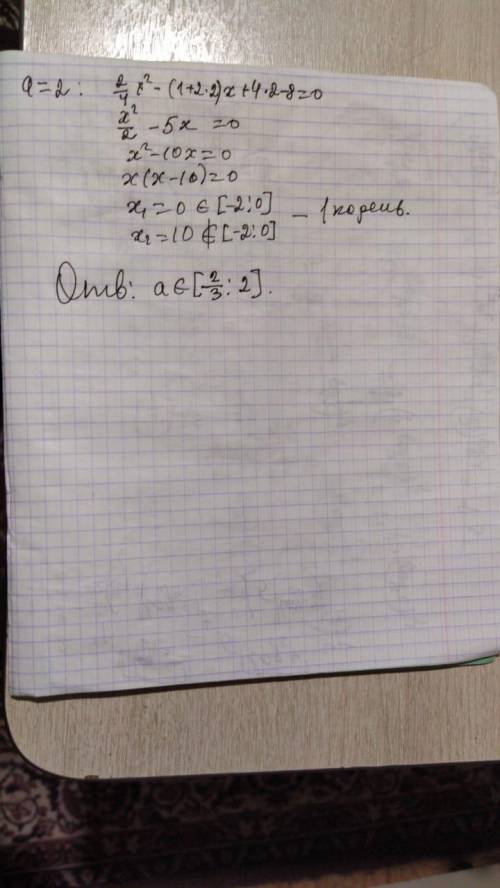 a=2: 2/4 x² - (1+2·2)x + 4·2-8=0
x²/2 - 5x = 0
x²-10x=0
x(x-10)=0
x₁=0 ∈ [-2;0] – 1 корень.
x₂=10 ∉ [-2;0]
Отв: a∈[2/3; 2].